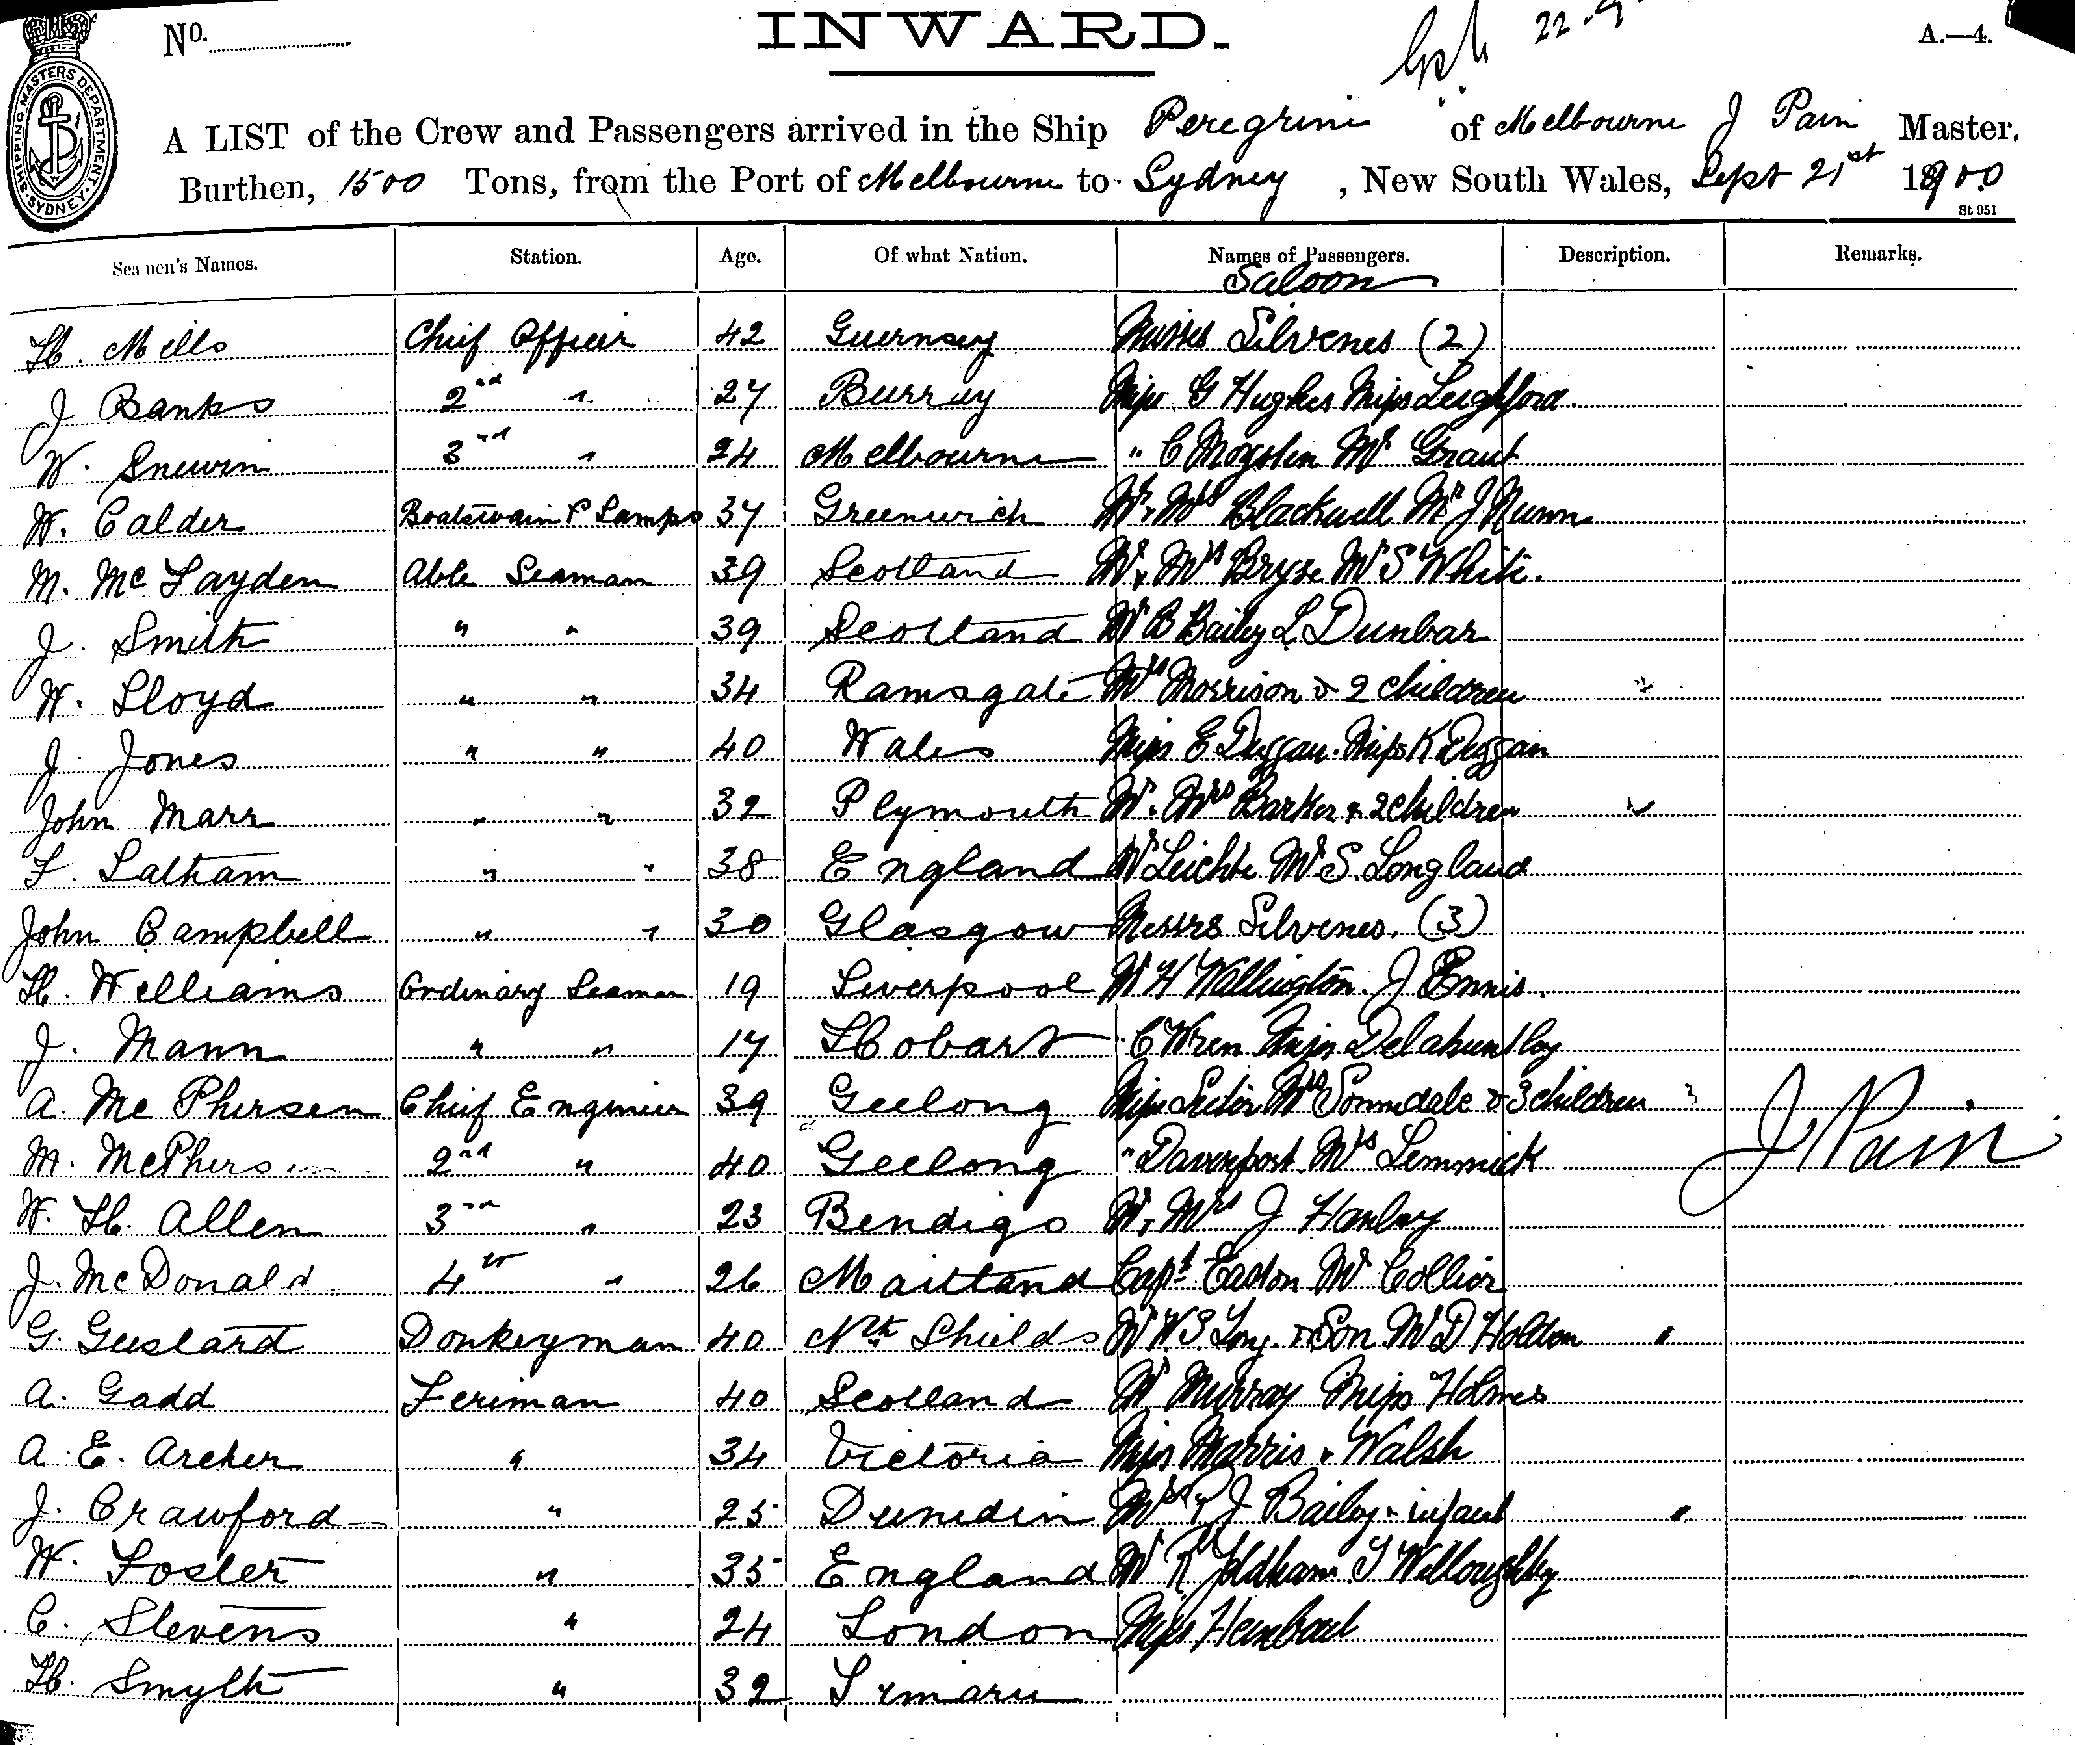 No.
INWARD.
22-9
A.—4.
SHIPPING MASTERS DEPARTMENT. SYDNEY.
A LIST of the Crew and Passengers arrived in the Ship Peregrine of Melbourne J Pain Master.
Burthen, 1500 Tons, from the Port of Melbourne to Sydney, New South Wales, Sept 21st 1900
St 951
Seamen's Names. Station. Age. Of what Nation. Names of Passengers. Description. Remarks.
Saloon
H. Mills Chief Officer 42 Guernsey Misses Silvenes (2)
J Banks 2nd " 27 Burray Miss G Hughes Miss Leighford
W. Snewin 3rd " 24 Melbourne " C Mogolin Mr Grant
W. Calder Boatswain & Lamps 37 Greenwich Mr, Mrs Blackwell Mr J Nunn
M. McFayden Able Seaman 39 Scotland Mr, Mrs Bryse Mr S White.
J. Smith " " 39 Scotland Mr B Bailey L Dunbar
W. Lloyd " " 34 Ramsgate Mrs Morrison & 2 children
J. Jones " " 40 Wales Miss E Duggan. Miss K Duggan
John Marr " " 32 Plymouth Mr. Mrs Barker & 2 children
F. Latham " " 38 England Mr Leichte Mr S. Longland
John Campbell " " 30 Glasgow Messrs Silvenes. (3)
H. Williams Ordinary Seaman 19 Liverpool Mr H Wallington. J Ennis.
J. Mann " " 17 Hobart C Wren Miss Delahuntley
A. McPhersen Chief Engineer 39 Geelong Miss Mrs Sonndale & 3 children
M. McPhersen 2nd " 40 Geelong " Davenport Mrs Lemmick
J Pain
W. H. Allen 3rd " 23 Bendigo Mr, Mrs J Hanley
J. McDonald 4th " 26 Maitland Capt Easton Mr Collier
G. Guslard Donkeyman 40 Nth Shields Mr W.S. & Son Mr D Holdon "
A. Gadd Feriman 40 Scotland Mr Murray Miss Holmes
A. E. Archer " 34 Victoria Miss Marris & Walsh
J. Crawford " 25 Dunedin Mrs J Bailey & infant "
W. Foster " 35 England Mr R Joldham T Willoughby
C. Stevens " 24 London Miss
H. Smyth " 32 Timaru